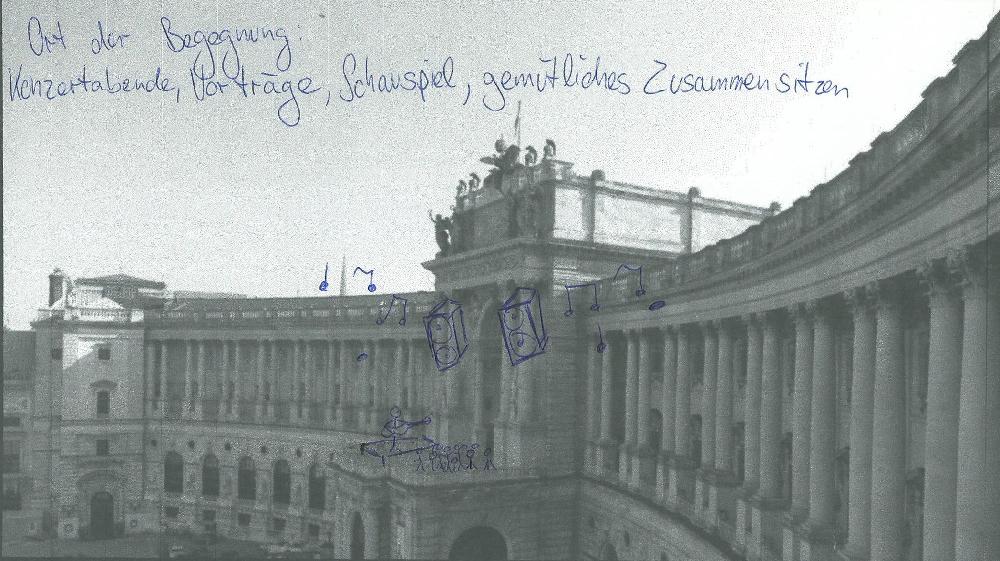 Ort der Begegnung:
Konzertabende, Vorträge, Schauspiel, gemütliches Zusammensitzen